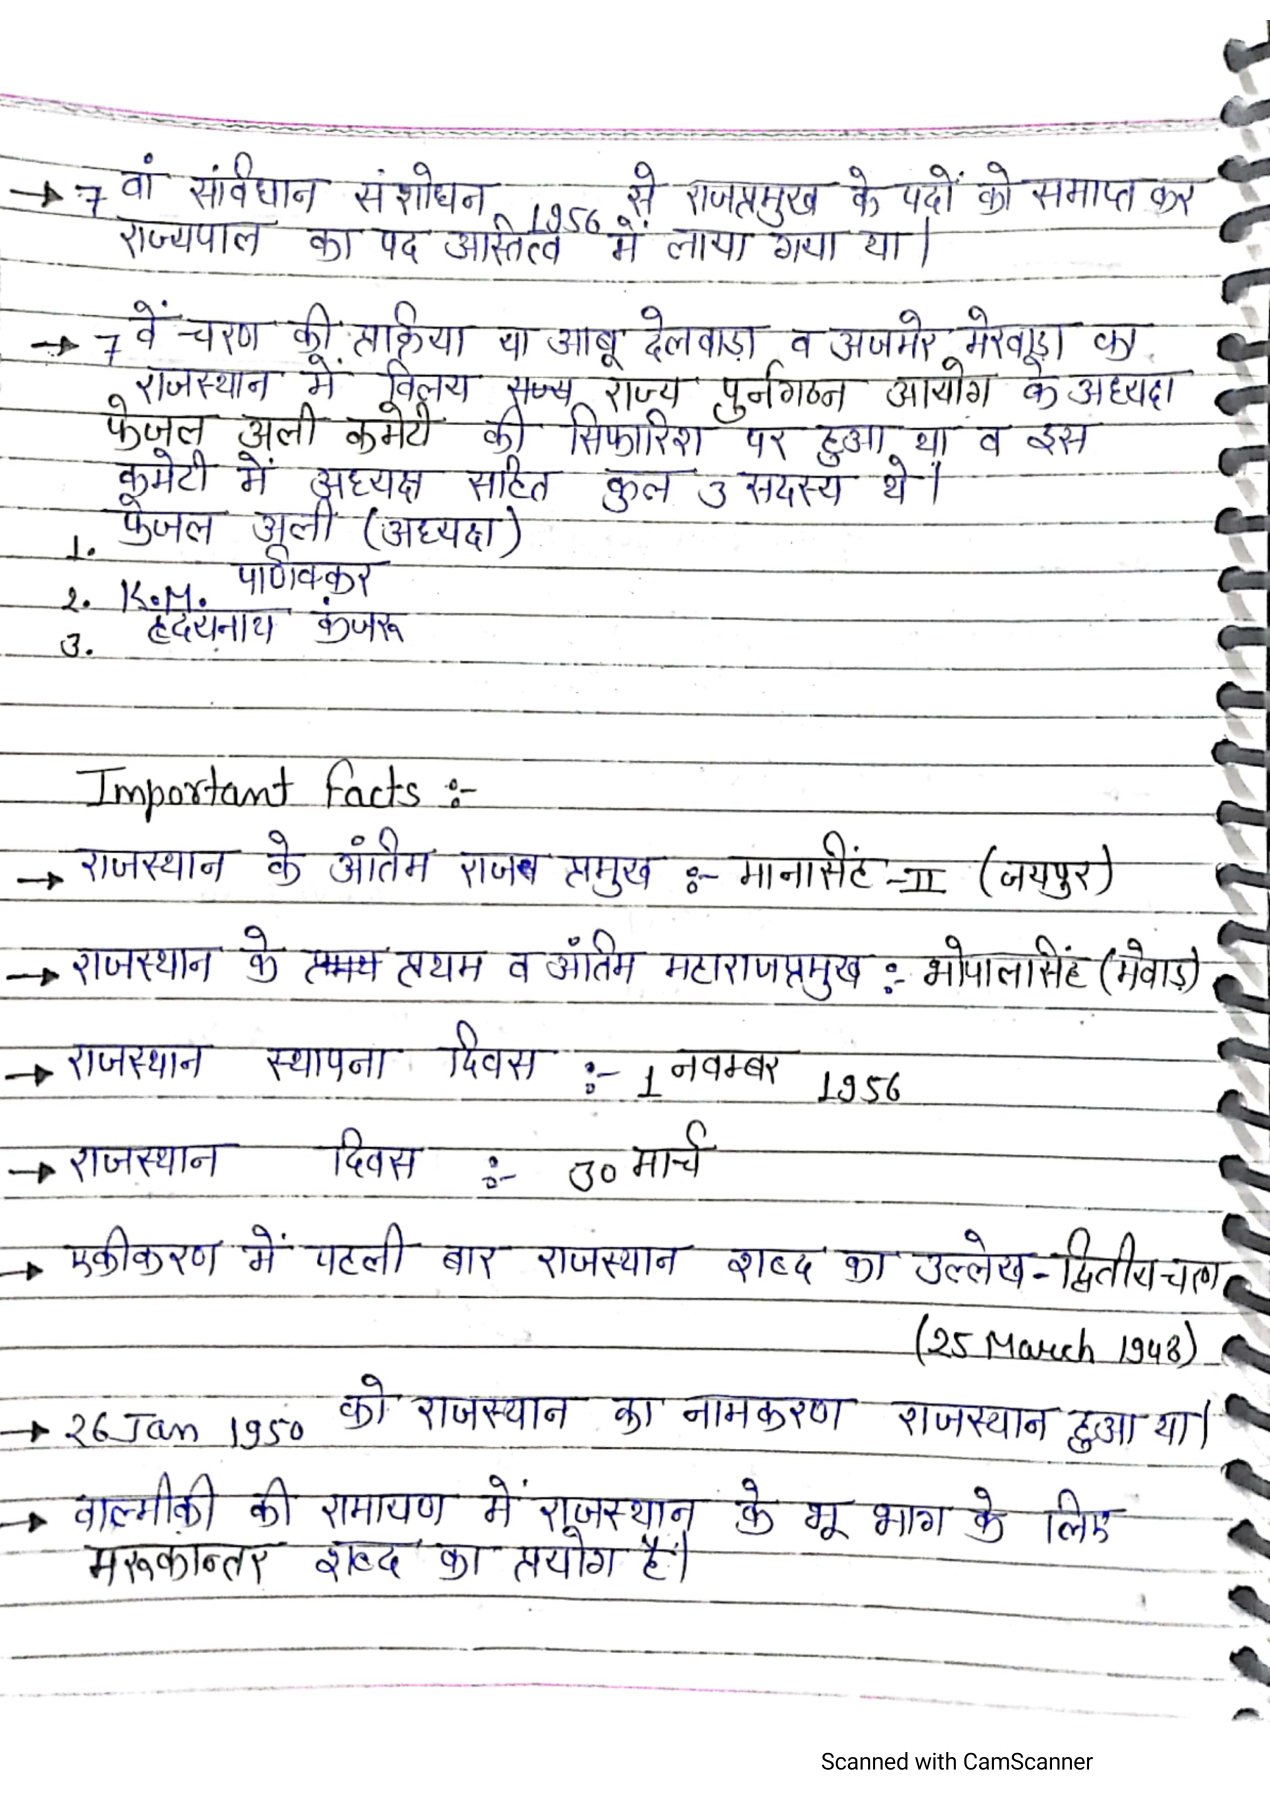 → 7 वां संविधान संशोधन, 1956 से राजप्रमुख के पदों को समाप्त कर
राज्यपाल का पद अस्तित्व में लाया गया था।
→ 7 वें चरण की प्रक्रिया या आबू देलवाड़ा व अजमेर मेरवाड़ा का
राजस्थान में विलय राज्य पुर्नगठन आयोग के अध्यक्ष
फेजल अली कमेटी की सिफारिश पर हुआ था व इस
कमेटी में अध्यक्ष सहित कुल 3 सदस्य थे।
1. फेजल अली (अध्यक्ष)
2. K.M. पाणिक्कर
3. हृदयनाथ कुंजरू
Important Facts :-
→ राजस्थान के अंतिम राज प्रमुख :- मानसिंह -II (जयपुर)
→ राजस्थान के प्रथम व अंतिम महाराजप्रमुख :- भोपालसिंह (मेवाड़)
→ राजस्थान स्थापना दिवस :- 1 नवम्बर 1956
→ राजस्थान दिवस :- 30 मार्च
→ एकीकरण में पहली बार राजस्थान शब्द का उल्लेख - द्वितीय चरण
(25 March 1948)
→ 26 Jan 1950 को राजस्थान का नामकरण राजस्थान हुआ था।
→ वाल्मीकी की रामायण में राजस्थान के भू भाग के लिए
मरूकान्तर शब्द का प्रयोग है।
Scanned with CamScanner